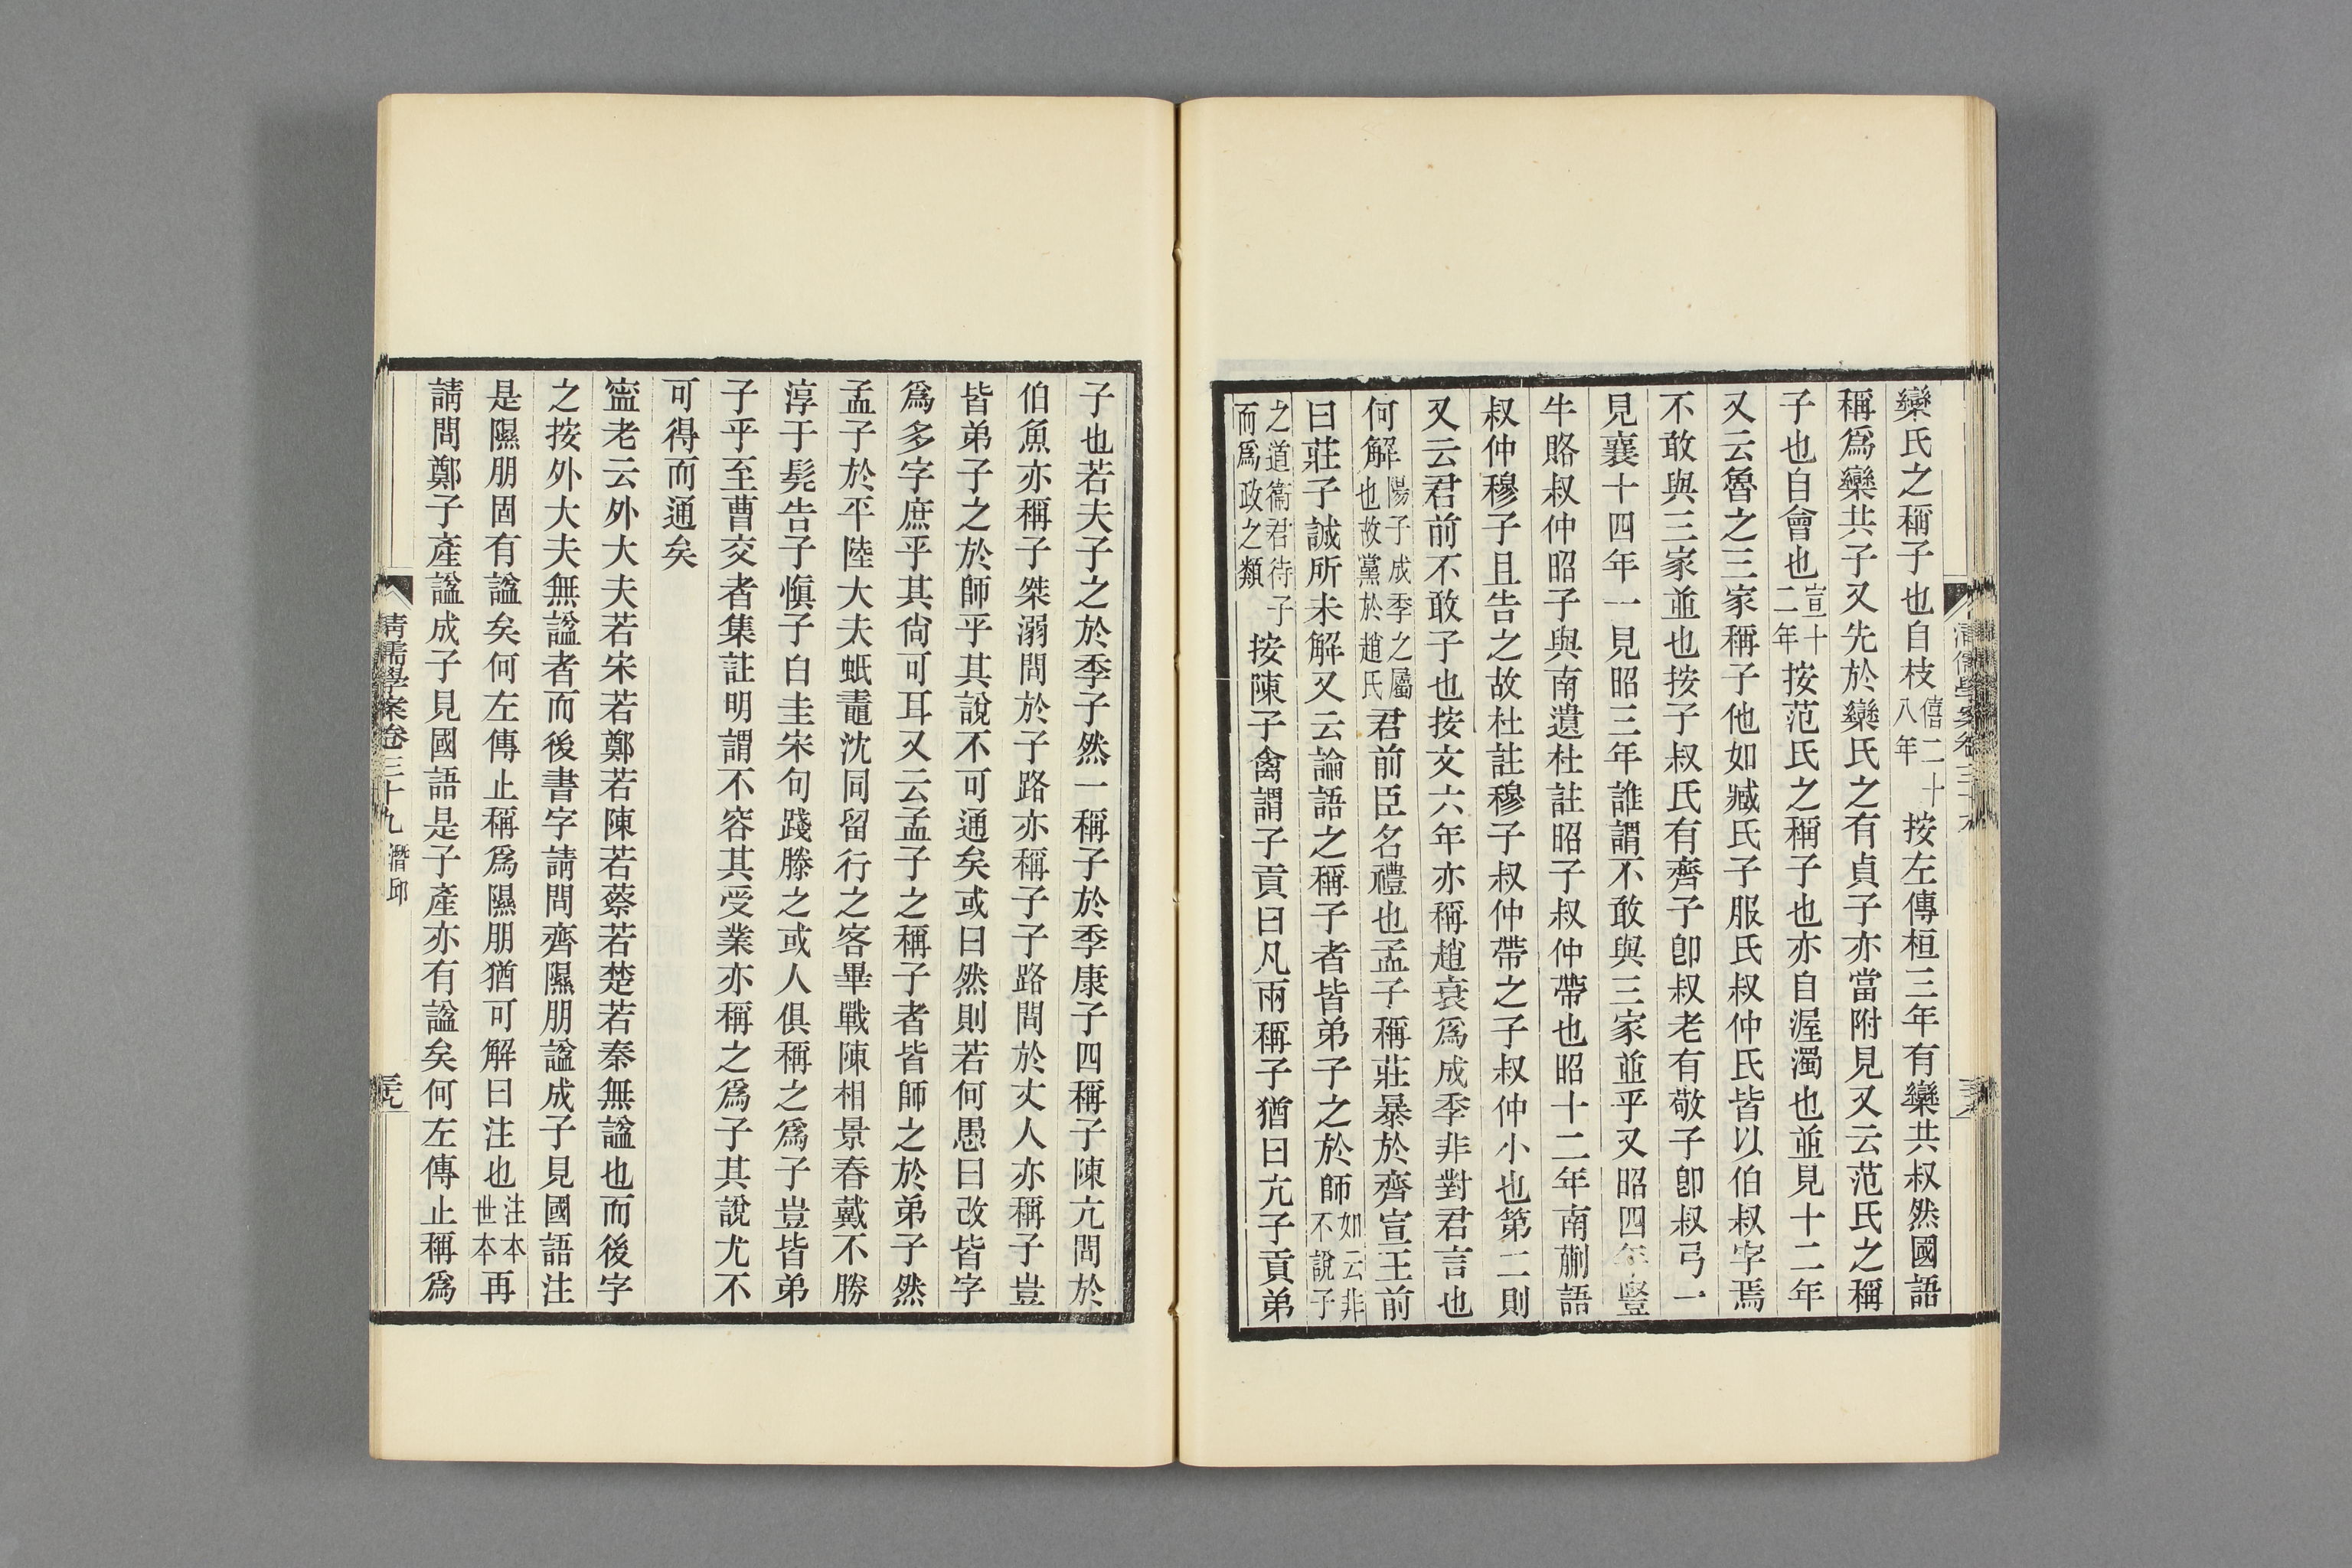 欒氏之稱子也自枝僖二十八年按左傳桓三年有欒共叔然國語
稱爲欒共子又先於欒氏之有貞子亦當附見又云范氏之稱
子也自會也宣十二年按范氏之稱子也亦自渥濁也並見十二年
又云魯之三家稱子他如臧氏子服氏叔仲氏皆以伯叔字焉
不敢與三家並也按子叔氏有齊子卽叔老有敬子卽叔弓一
見襄十四年一見昭三年誰謂不敢與三家並乎又昭四年豎
牛賂叔仲昭子與南遺杜註昭子叔仲帶也昭十二年南蒯語
叔仲穆子且告之故杜註穆子叔仲帶之子叔仲小也第二則
又云君前不敢子也按文六年亦稱趙衰爲成季非對君言也
何解陽子成季之屬也故黨於趙氏君前臣名禮也孟子稱莊暴於齊宣王前
曰莊子誠所未解又云論語之稱子者皆弟子之於師如云非不說子
之道衞君待子而爲政之類按陳子禽謂子貢曰凡兩稱子猶曰亢子貢弟
子也若夫子之於季子然一稱子於季康子四稱子陳亢問於
伯魚亦稱子桀溺問於子路亦稱子子路問於丈人亦稱子豈
皆弟子之於師乎其說不可通矣或曰然則若何愚曰改皆字
爲多字庶乎其尙可耳又云孟子之稱子者皆師之於弟子然
孟子於平陸大夫蚔鼃沈同留行之客畢戰陳相景春戴不勝
淳于髡告子愼子白圭宋句踐滕之或人俱稱之爲子豈皆弟
子乎至曹交者集註明謂不容其受業亦稱之爲子其說尤不
可得而通矣
寍老云外大夫若宋若鄭若陳若蔡若楚若秦無諡也而後字
之按外大夫無諡者而後書字請問齊隰朋諡成子見國語注
是隰朋固有諡矣何左傳止稱爲隰朋猶可解曰注也注本世本再
請問鄭子產諡成子見國語是子產亦有諡矣何左傳止稱爲
清儒學案卷三十九 潛邱